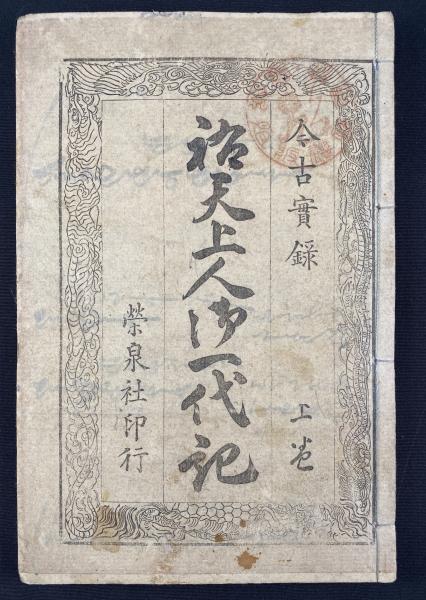 今古實錄
上巻
祐天上人御一代記
榮泉社印行